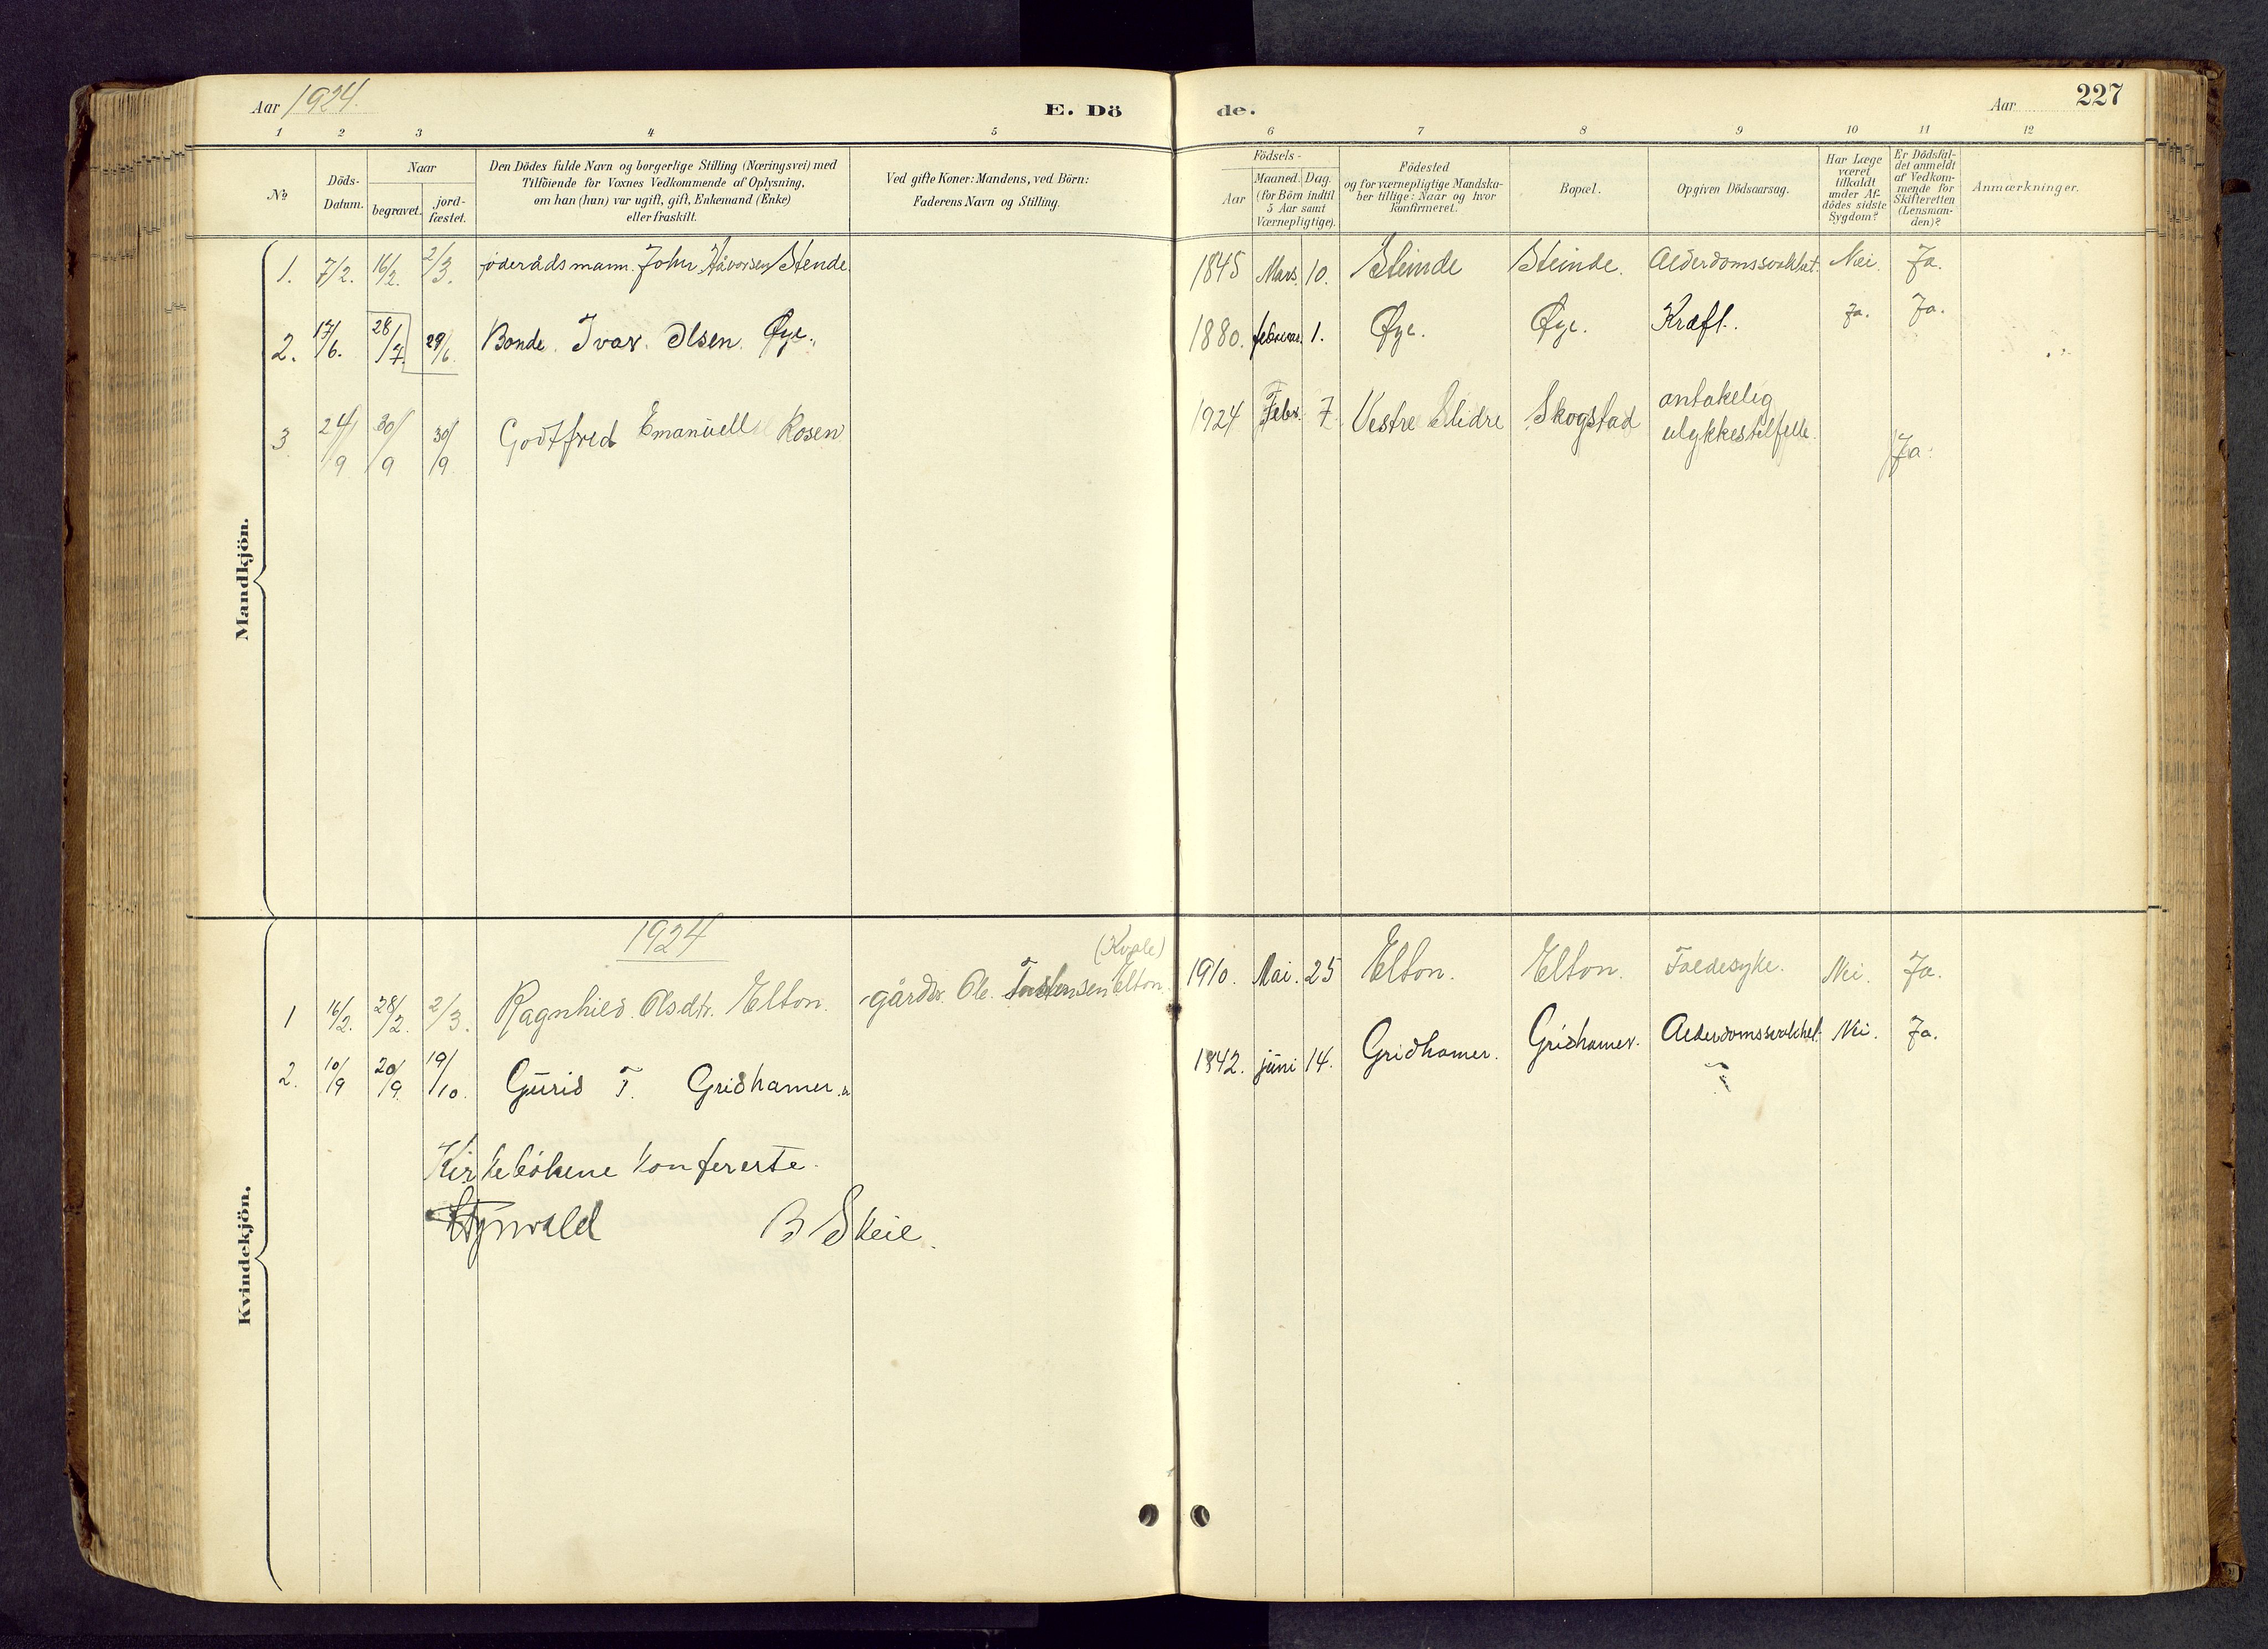 Aar 1924. E. Dö de. Aar 227
1 2 3 4 5 6 7 8 9 10 11 12
No.
Döds-
Datum.
Naar
begravet.
jord-
fæstet.
Den Dödes fulde Navn og borgerlige Stilling (Næringsvei) med
Tilföiende for Voxnes Vedkommende af Oplysning,
om han (hun) var ugift, gift, Enkemand (Enke)
eller fraskilt.
Ved gifte Koner: Mandens, ved Börn:
Faderens Navn og Stilling.
Födsels-
Aar
Maaned. Dag.
(for Börn indtil
5 Aar samt
Værnepligtige).
Födested
og for værnepligtige Mandska-
ber tillige: Naar og hvor
konfirmeret.
Bopæl.
Opgiven Dödsaarsag.
Har Læge
været
tilkaldt
under Af-
dödes sidste
Sygdom?
Er Dödsfal-
det anmeldt
af Vedkom-
mende for
Skifteretten
(Lensman-
den)?
Anmærkninger.
Mandkjön.
1. 7/2. 16/2. 2/3. föderådsmann. John Håvorsen Stende. 1845 Mars. 10. Steinde Steinde. Alderdomssvakhet. Nei. Ja.
2. 17/6. 28/7. 29/6. Bonde. Ivar. Olsen. Øye. 1880. februar. 1. Øye. Øye. Kræft. Ja. Ja.
3 24/9 30/9 30/9 Godtfred Emanuell Rosen 1924 Febr. 7. Vestre Slidre Skogstad antakelig
ulykkestilfelle. Ja.
Kvindekjön.
1924
(Kvale)
1 16/2. 28/2. 2/3. Ragnhild. Olsdtr. Elton. gårdbr. Ole. Torstensen Elton. 1910. Mai. 25 Elton. Elton. Faldesyke. Nei. Ja.
2. 10/9 20/9. 19/10. Gurid T. Gridhamer. 1842. juni 14. Gridhamer. Gridhamer. Alderdomssvakhet. Nei. Ja.
Kirkebökene konfererte.
B Skeie.